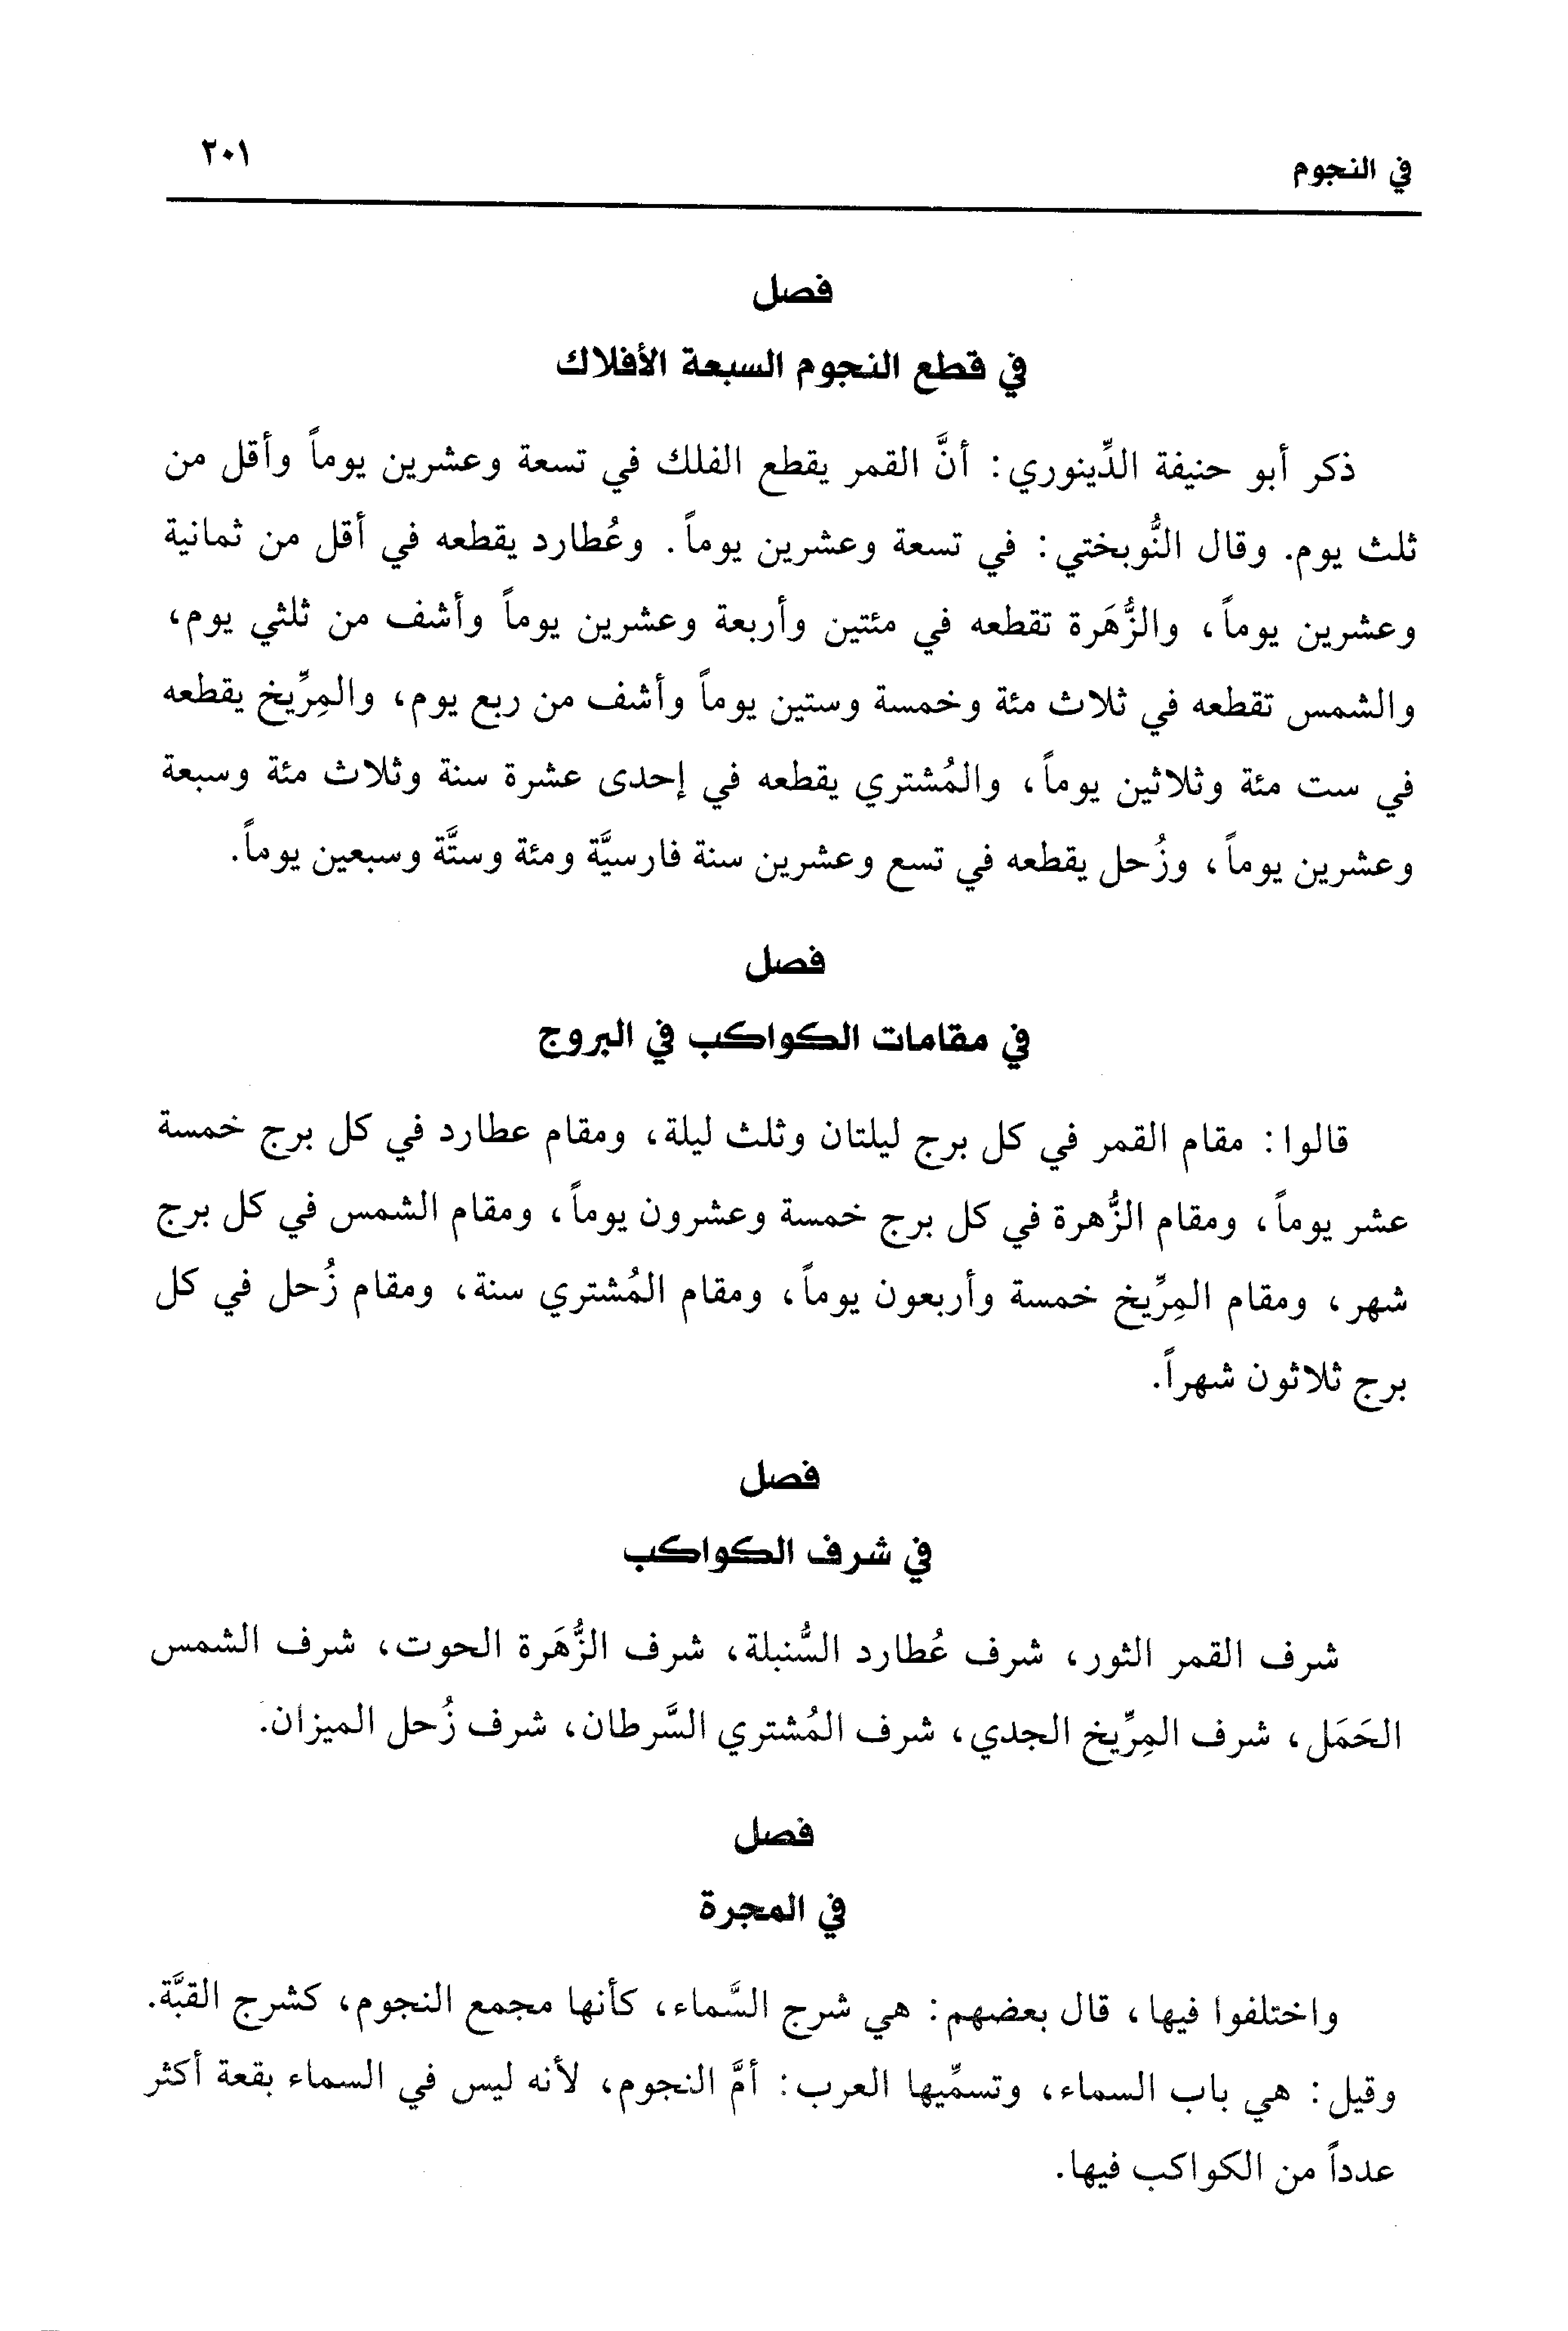 في النجوم
٢٠١
فصل
في قطع النجوم السبعة الأفلاك
ذكر أبو حنيفة الدِّينوري: أنَّ القمر يقطع الفلك في تسعة وعشرين يوماً وأقل من
ثلث يوم. وقال النُّوبختي: في تسعة وعشرين يوماً. وعُطارد يقطعه في أقل من ثمانية
وعشرين يوماً، والزُّهَرة تقطعه في مئتين وأربعة وعشرين يوماً وأشف من ثلثي يوم،
والشمس تقطعه في ثلاث مئة وخمسة وستين يوماً وأشف من ربع يوم، والمِرِّيخ يقطعه
في ست مئة وثلاثين يوماً، والمُشتري يقطعه في إحدى عشرة سنة وثلاث مئة وسبعة
وعشرين يوماً، وزُحل يقطعه في تسع وعشرين سنة فارسيَّة ومئة وستَّة وسبعين يوماً.
فصل
في مقامات الكواكب في البروج
قالوا: مقام القمر في كل برج ليلتان وثلث ليلة، ومقام عطارد في كل برج خمسة
عشر يوماً، ومقام الزُّهرة في كل برج خمسة وعشرون يوماً، ومقام الشمس في كل برج
شهر، ومقام المِرِّيخ خمسة وأربعون يوماً، ومقام المُشتري سنة، ومقام زُحل في كل
برج ثلاثون شهراً.
فصل
في شرف الكواكب
شرف القمر الثور، شرف عُطارد السُّنبلة، شرف الزُّهَرة الحوت، شرف الشمس
الحَمَل، شرف المِرِّيخ الجدي، شرف المُشتري السَّرطان، شرف زُحل الميزان.
فصل
في المجرة
واختلفوا فيها، قال بعضهم: هي شرج السَّماء، كأنها مجمع النجوم، كشرج القبَّة.
وقيل: هي باب السماء، وتسمِّيها العرب: أمَّ النجوم، لأنه ليس في السماء بقعة أكثر
عدداً من الكواكب فيها.